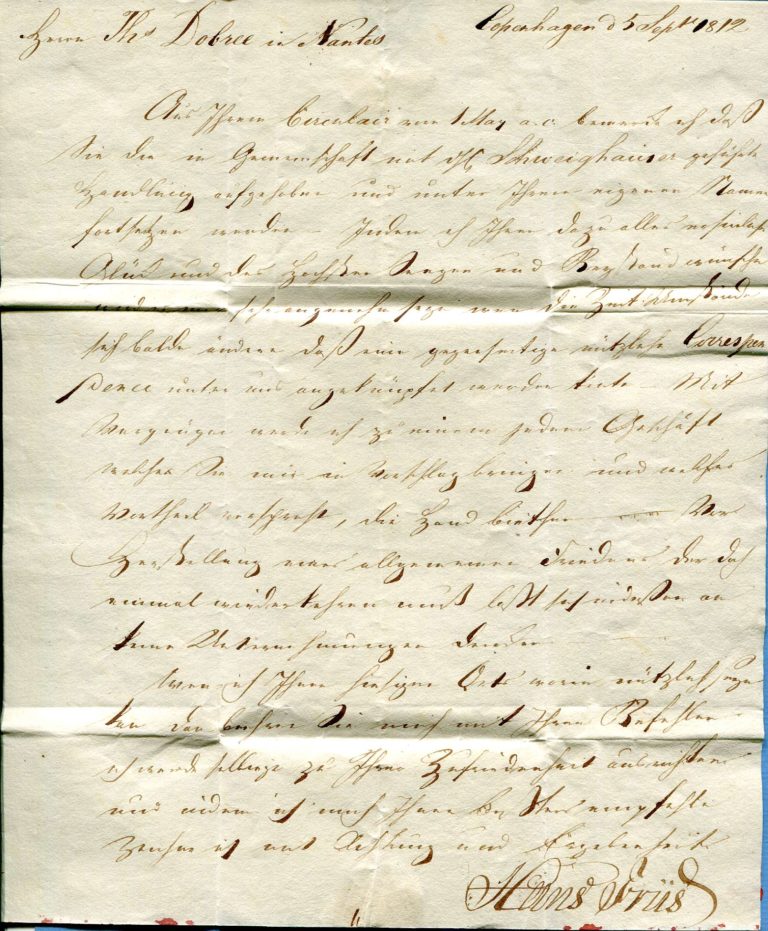 Herrn Ths Dobree in Nantes
Copenhagen d 5 Septr 1812
Aus Ihrem Circulair vom 1 May a.c. bemerke ich daß
Sie die in Gemeinschaft mit Schweighauser geführte
Handlung aufgehoben und unter Ihrem eigenen Namen
fortsetzen werden – Indem ich Ihnen dazu alles
Glück und des Höchsten Seegen und Beystand wünsche
sehr angenehm seyn wen die Zeit Umstände
sich balde ändern daß eine gegenseitige nützliche Correspon
dence unter uns angeknüpfet werden Mit
Vergnügen werde ich zu einem jeden Geschäft
welches Sie mir in Vorschlag bringen und welches
Vortheil verspricht, die Hand biethen Vor
Herstellung eines allgemeinen Friedens der doch
einmal wiederkehren muß läßt sich indeßen an
keine Unternehmungen denken
Wen ich Ihnen hiesigen Orts worin nützlich seyn
kan Sie mich mit Ihren Befehlen
ich werde selbige zu Ihrer Zufriedenheit ausrichten
und indem ich mich Ihnen bestens empfehle
Zeichne ich mit Achtung und Ergebenheit
Hans Friis